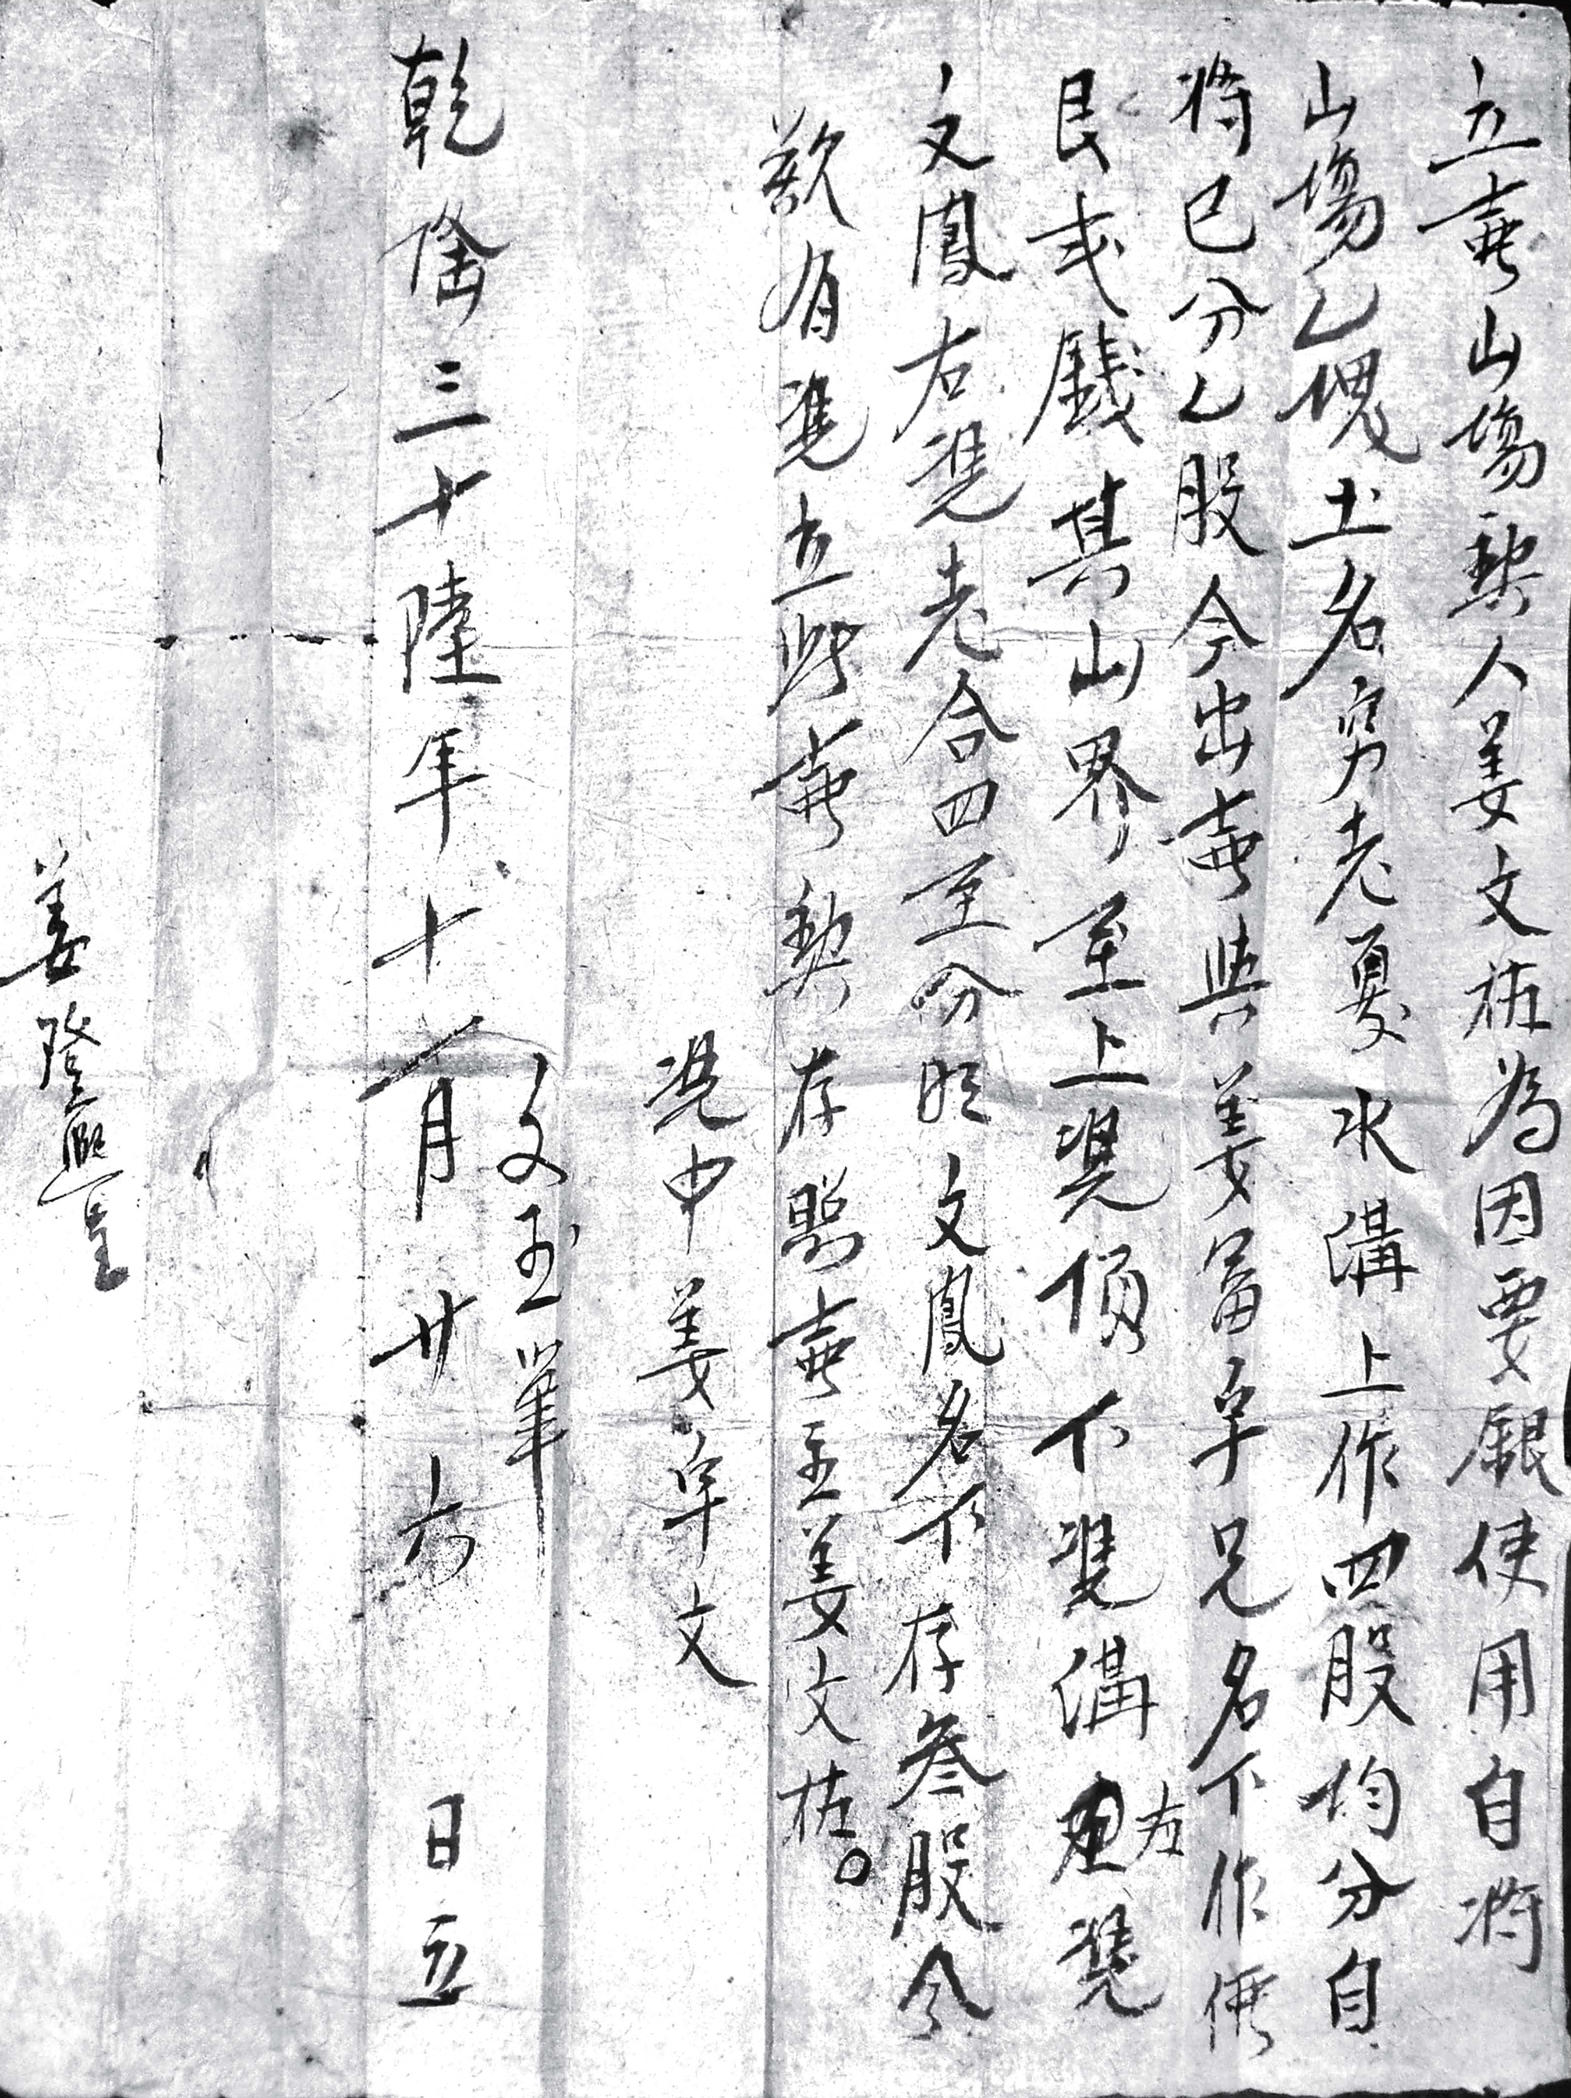 立賣山塲契人姜文祐為因要銀使用自將
山塲乙塊土名穷老夏水溝上作四股均分自
將已分乙股今出賣與姜富宇兄名下作價
艮貳錢其山界至上凴傾下凴溝左凴
文鳳右凴老合四至分明文鳳名下存叁股今
欲有凴立此賣契存照賣主姜文祐。
凴中姜宇文
文玉筆
乾隆三十陸年十一月廿六日立
姜登熙